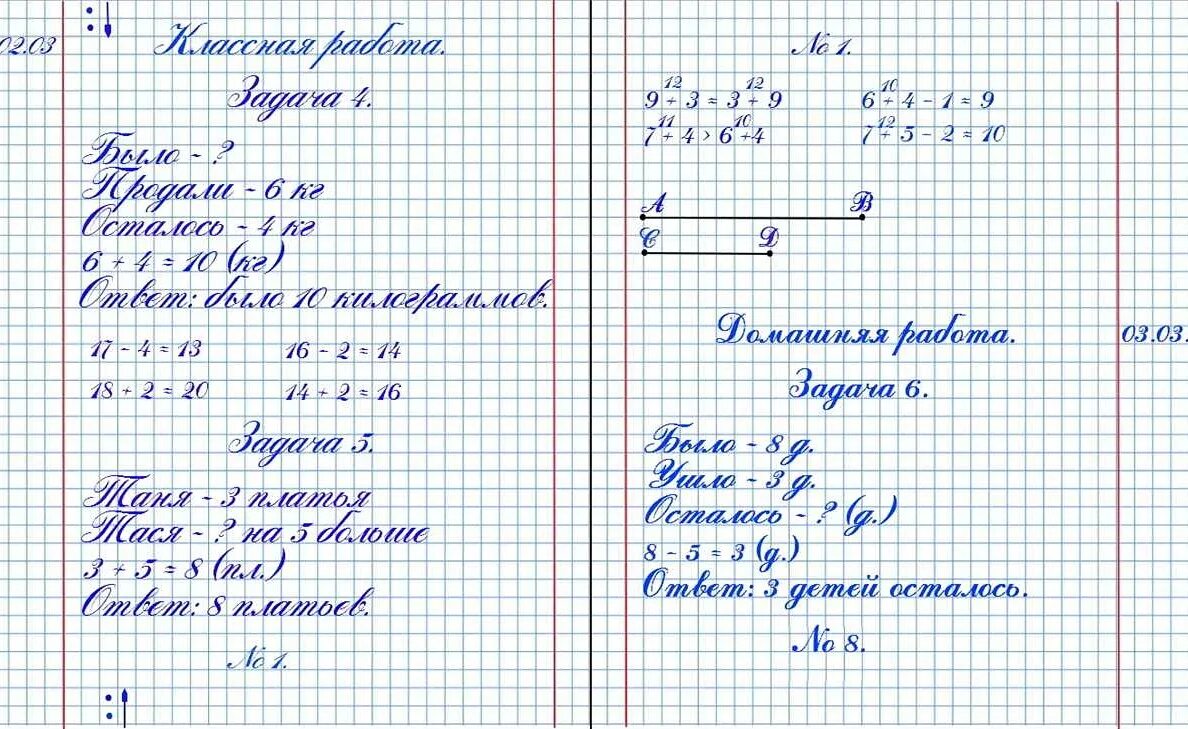 02.03
Классная работа.
Задача 4.
Было - ?
Продали - 6 кг
Осталось - 4 кг
6 + 4 = 10 (кг)
Ответ: было 10 килограммов.
17 - 4 = 13 16 - 2 = 14
18 + 2 = 20 14 + 2 = 16
Задача 5.
Таня - 3 платья
Тася - ? на 5 больше
3 + 5 = 8 (пл.)
Ответ: 8 платьев.
№ 1.
№ 1.
12 12 10
9 + 3 = 3 + 9 6 + 4 - 1 = 9
11 10 12
7 + 4 > 6 + 4 7 + 5 - 2 = 10
A B
C D
Домашняя работа. 03.03.
Задача 6.
Было - 8 д.
Ушло - 3 д.
Осталось - ? (д.)
8 - 5 = 3 (д.)
Ответ: 3 детей осталось.
№ 8.